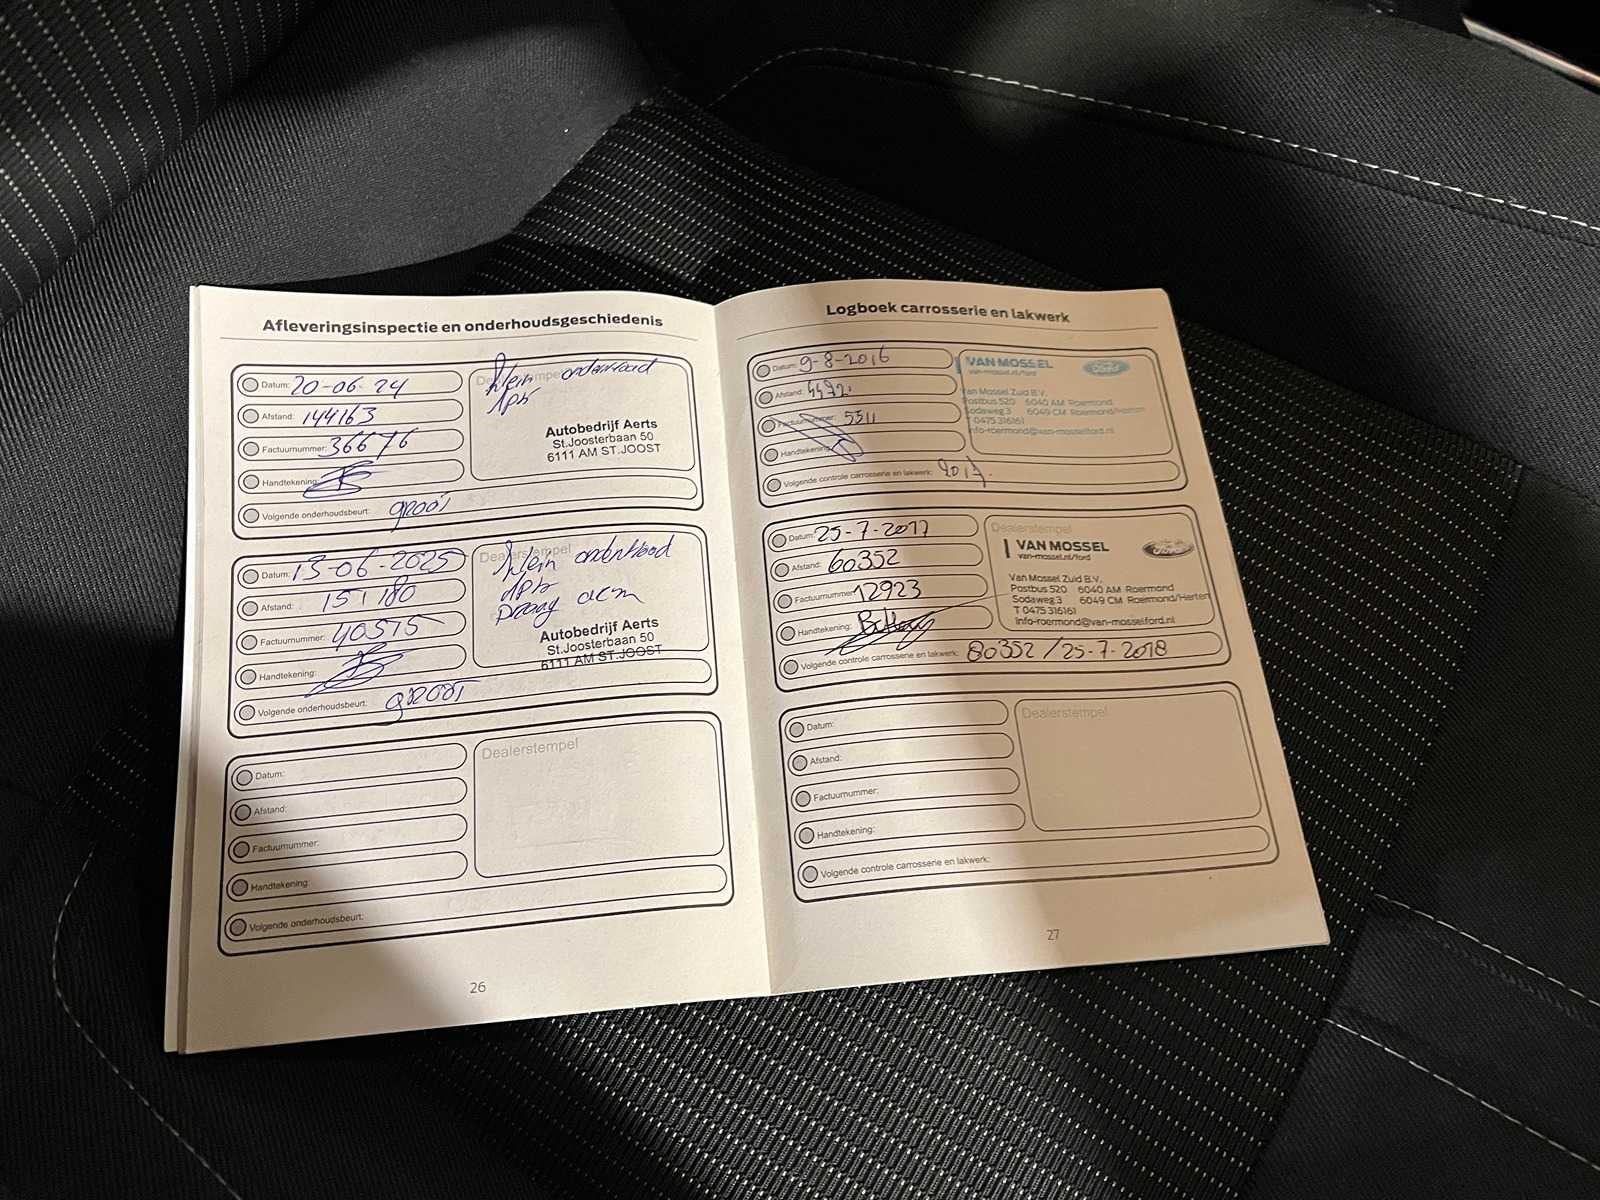 Afleveringsinspectie en onderhoudsgeschiedenis
Datum: 20-06-24
Afstand: 144163
Factuurnummer: 36676
Handtekening:
Volgende onderhoudsbeurt: groot
Dealerstempel
klein onderhoud
apk
Autobedrijf Aerts
St.Joosterbaan 50
6111 AM ST.JOOST
Datum: 13-06-2025
Afstand: 151180
Factuurnummer: 40515
Handtekening:
Volgende onderhoudsbeurt: groot
Dealerstempel
klein onderhoud
apk
Autobedrijf Aerts
St.Joosterbaan 50
6111 AM ST.JOOST
Datum:
Afstand:
Factuurnummer:
Handtekening:
Volgende onderhoudsbeurt:
Dealerstempel
26
Logboek carrosserie en lakwerk
Datum: 9-8-2016
Afstand:
Factuurnummer: 5511
Handtekening:
Volgende controle carrosserie en lakwerk: 2017.
VAN MOSSEL
van-mossel.nl/ford
Ford
Van Mossel Zuid B.V.
Postbus 520 6040 AM Roermond
Sodaweg 3 6049 CM Roermond/Herten
T 0475 316161
info-roermond@van-mosselford.nl
Datum: 25-7-2017
Afstand: 60352
Factuurnummer: 12923
Handtekening:
Volgende controle carrosserie en lakwerk: 80352 / 25-7-2018
Dealerstempel
VAN MOSSEL
van-mossel.nl/ford
Ford
Van Mossel Zuid B.V.
Postbus 520 6040 AM Roermond
Sodaweg 3 6049 CM Roermond/Herten
T 0475 316161
info-roermond@van-mosselford.nl
Datum:
Afstand:
Factuurnummer:
Handtekening:
Volgende controle carrosserie en lakwerk:
Dealerstempel
27